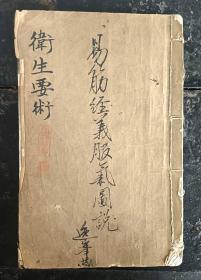 易筋經義服氣圖說
衛生要術